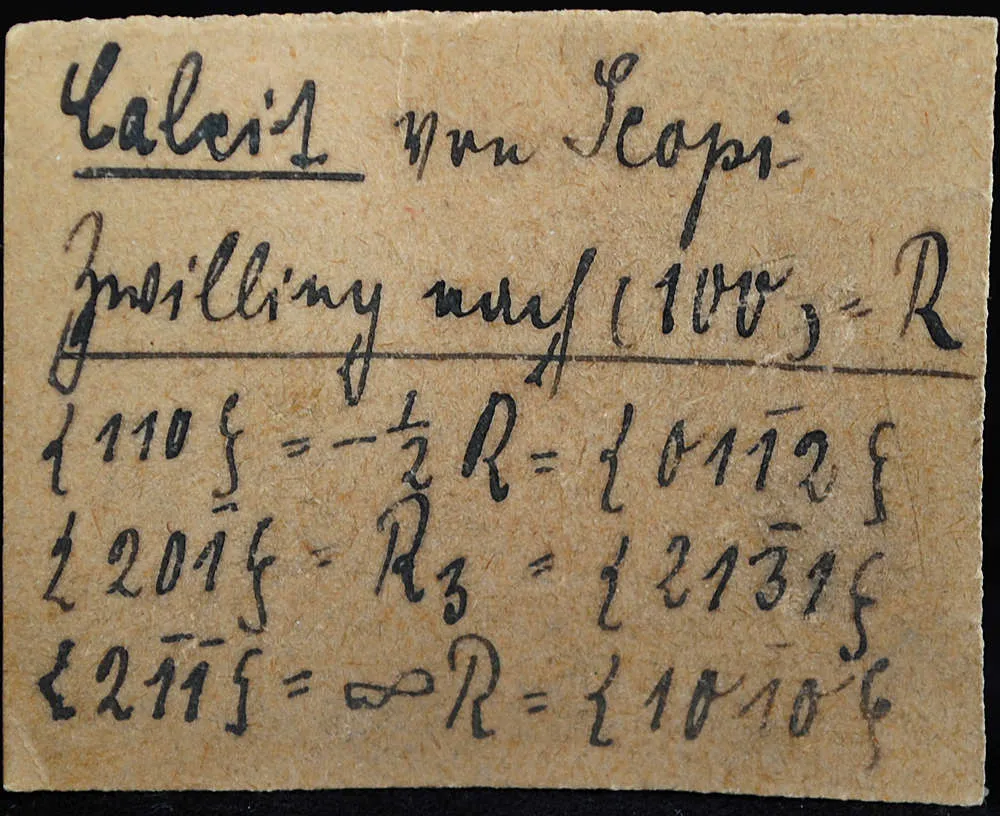 Calcit von Scopi
Zwilling nach (100) = R
{110} = -½ R = {011̄2}
{201̄} = R3 = {213̄1}
{21̄1̄} = ∞R = {101̄0}